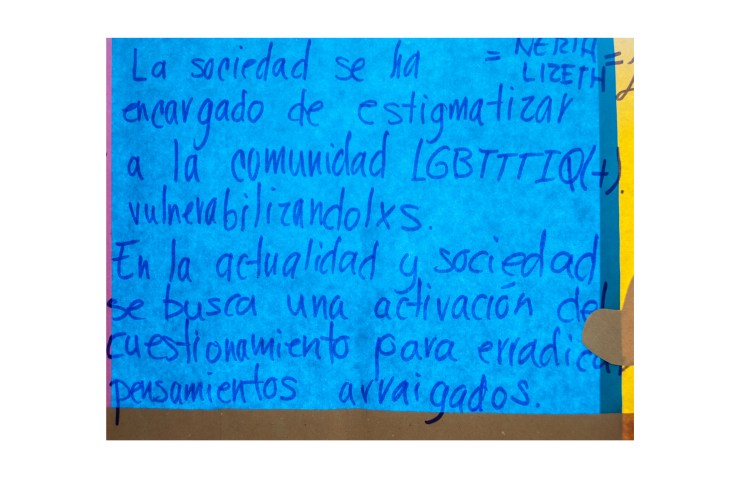 La sociedad se ha
= NERIH
LIZETH =
encargado de estigmatizar
a la comunidad LGBTTTIQ(+).
vulnerabilizandolxs.
En la actualidad y sociedad
se busca una activación del
cuestionamiento para erradicar
pensamientos arraigados.